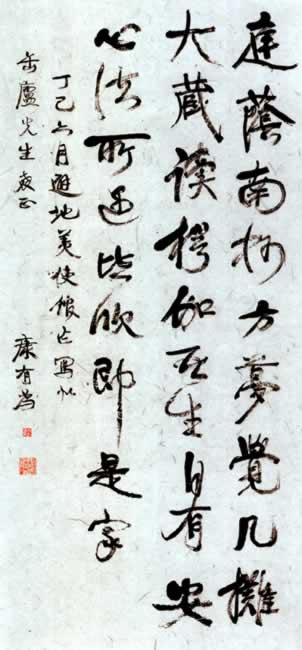 庭蔭南柯方夢覺几攤
大藏讀楞伽死生自有安
心法所遇皆欣即是家
丁巳六月避地美使館作寫似
缶廬先生教正
康有為